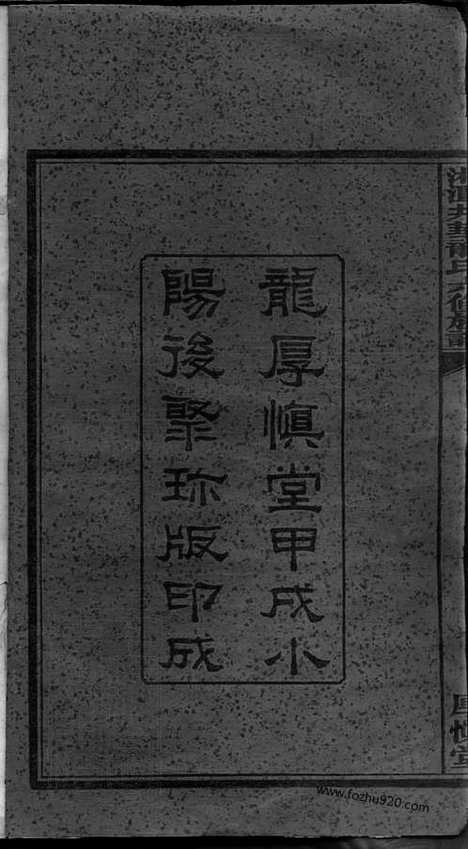 龍厚慎堂甲戌小
陽後聚珍版印成
厚慎堂
www.fozhu920.com